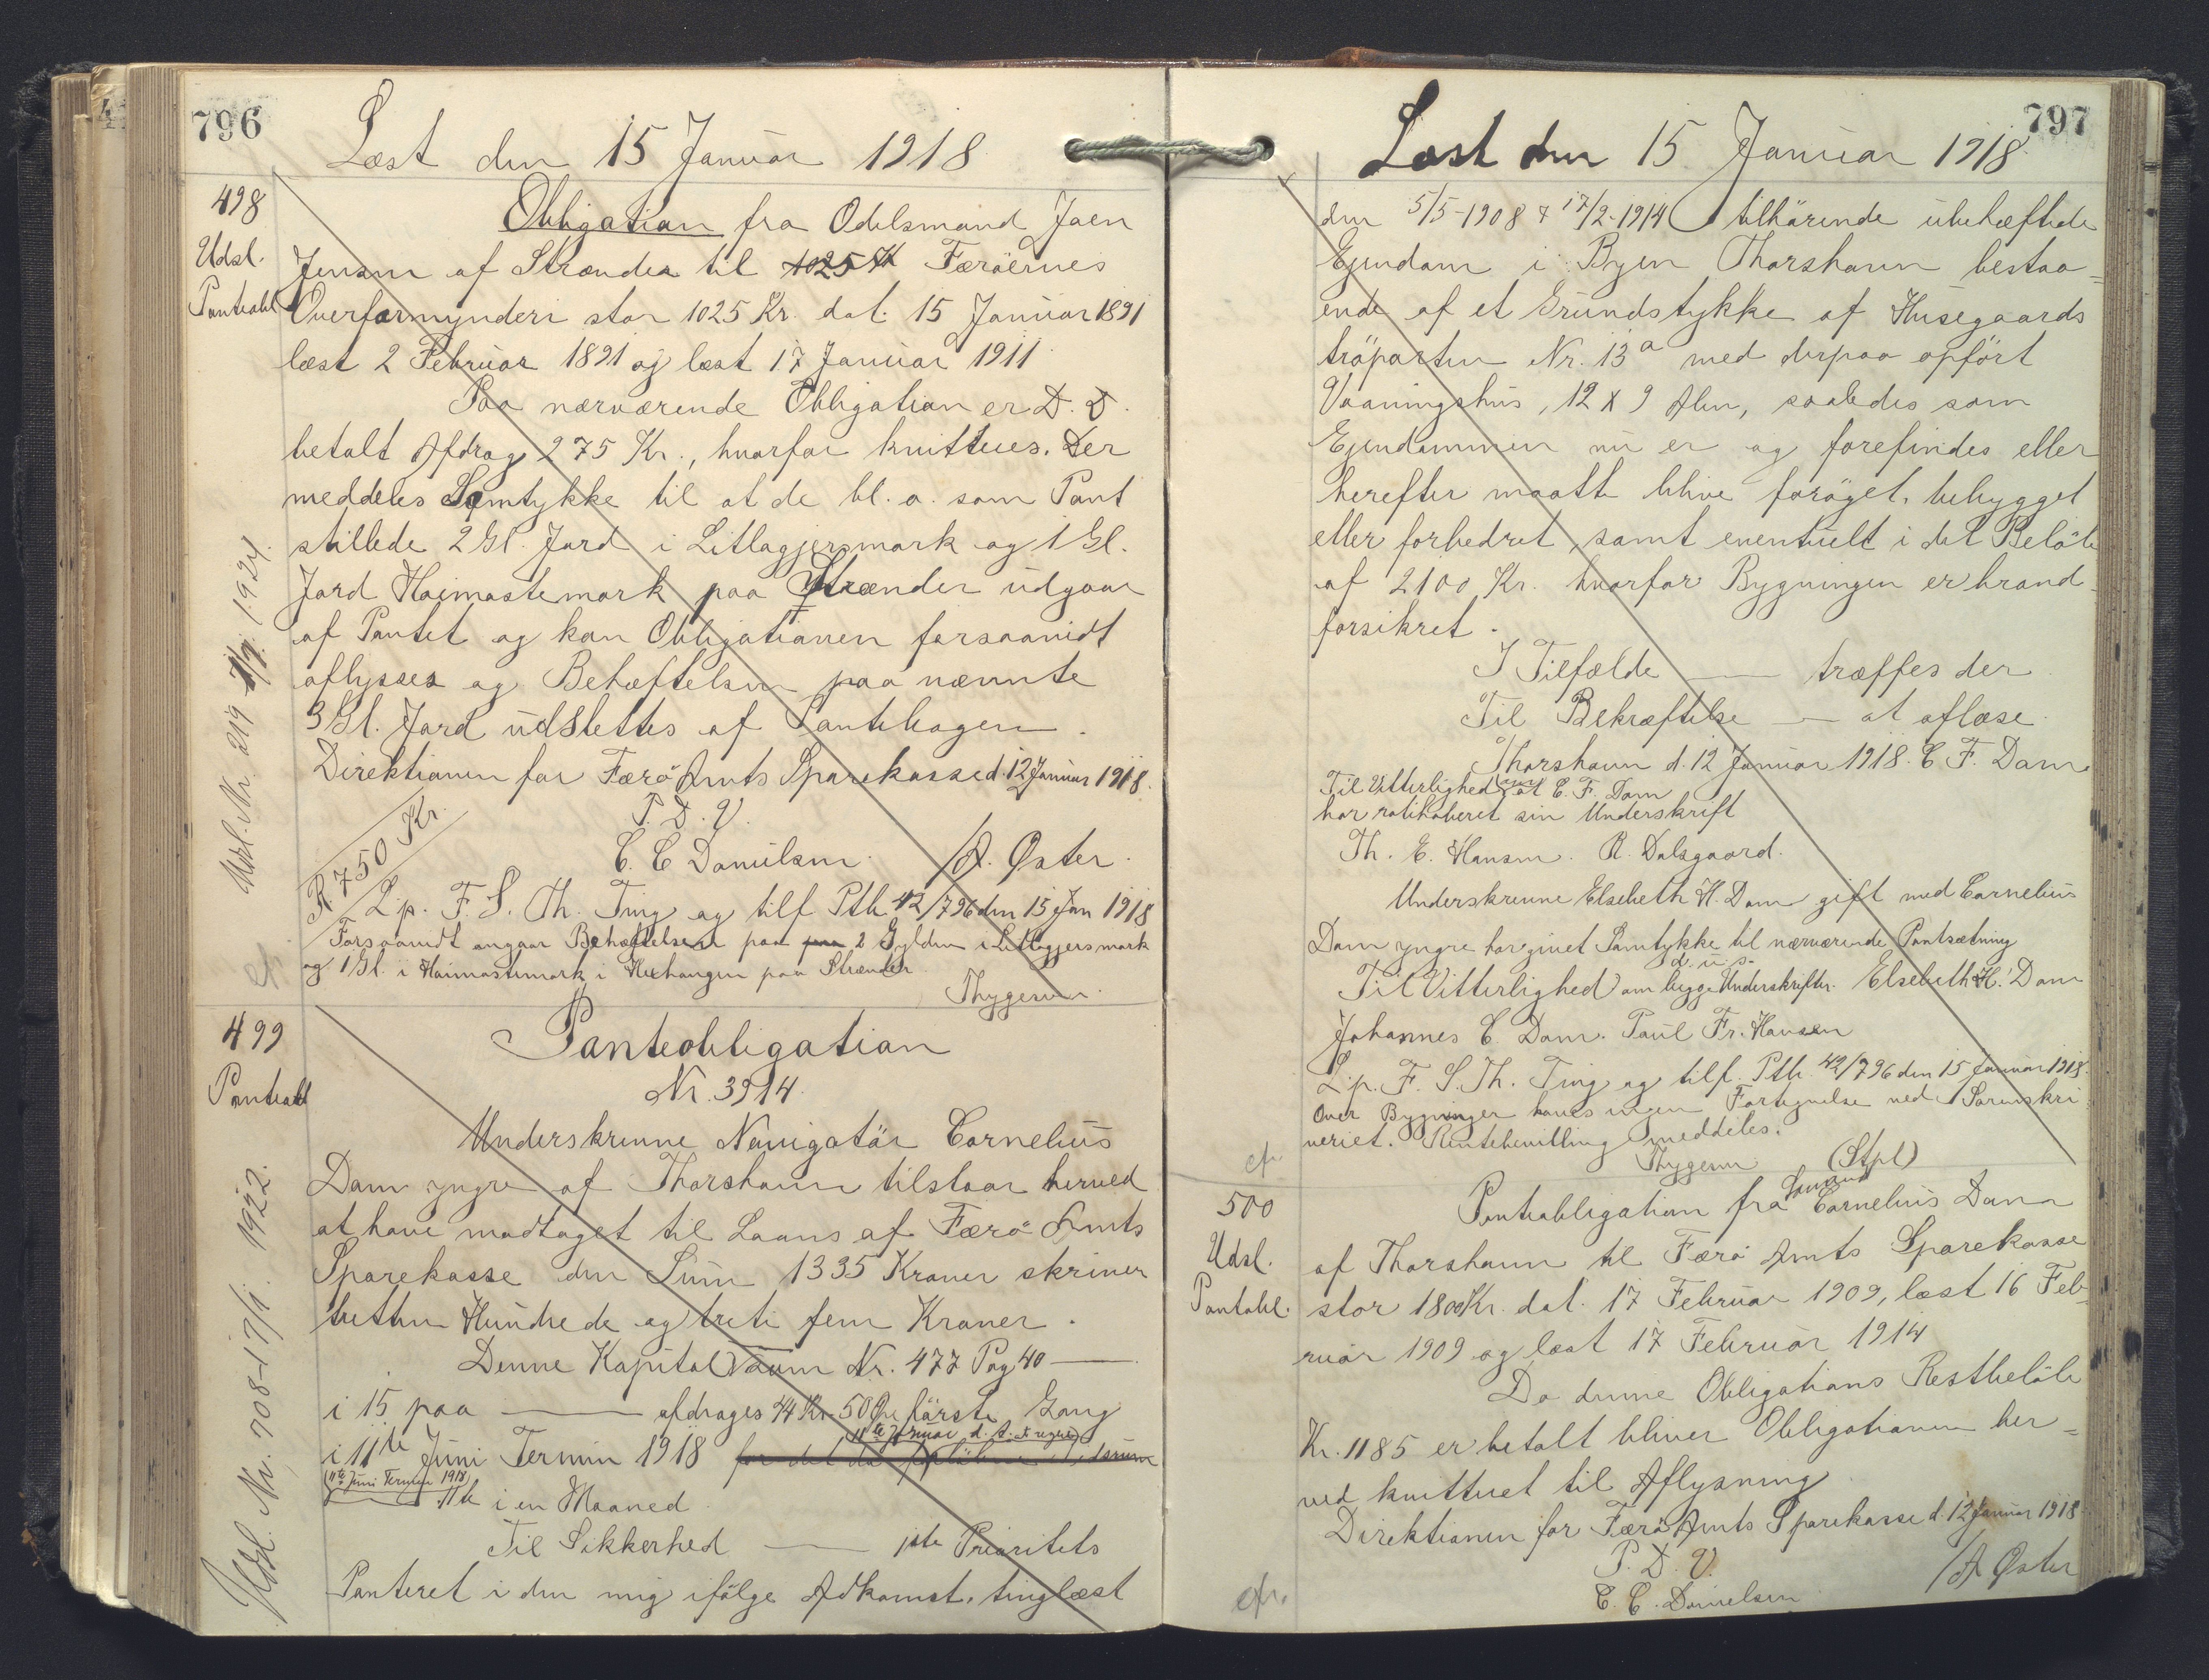 796
Læst den 15 Januar 1918
498
Udsl.
Panteobl
Obligation fra Odelsmand Joen
Jensen af Strænder til 1025 Kr Færöernes
Overformynderi stor 1025 Kr. dat. 15 Januar 1891
læst 2 Februar 1891 og læst 17 Januar 1911
Paa nærværende Obligation er D. D.
betalt Afdrag 275 Kr., hvorfor kvitteres. Der
meddeles Samtykke til at de bl. a. som Pant
stillede 2 Gl. Jord i Litlagjersmark og 1 Gl.
Jord Haimastemark paa Strænder udgaar
af Pantet og kan Obligationen forsaavidt
aflyses og Behæftelsen paa nævnte
3 Gl. Jord udslettes af Pantebogen.
Direktionen for Færö Amts Sparekasse d. 12 Januar 1918.
P. D. V.
C. C Danielsen. / A. Øster.
R. 750 Kr.
L. p. F. S. Th. Ting og tilf Ptb 42/796 den 15 Jan 1918
Forsaavidt angaar Behæftelsen paa paa 2 Gylden i Litlagjersmark
og 1 Gl. i Haimastemark i Huxhangen paa Strænder.
Thygesen.
cfr.
Udsl. Nr. 219 1/7. 1924.
499
Panteobl
Panteobligation
Nr. 3514.
Underskrevne Navigatör Cornelius
Dam yngre af Thorshavn tilstaar herved
at have modtaget til Laans af Færö Amts
Sparekasse den Sum 1335 Kroner skriver
tretten Hundrede og treti fem Kroner.
Denne Kapital saum Nr. 477 Pag 40 —
i 15 paa — afdrages 44 Kr. 50 Øre förste Gang
11te Januar d. A. at regne
i 11te Juni Termin 1918
(11te Juni Termin 1918)
— 11te i en Maaned.
Til Sikkerhed — 1ste Prioritets
Panteret i den mig ifölge Adkomst, tinglæst
Udsl. Nr. 708 - 17/1. 1922.
797
Læst den 15 Januar 1918.
den 5/5-1908 & 17/2-1914 tilhörende ubehæftede
Ejendom i Byen Thorshavn bestaa=
ende af et Grundstykke af Husegaards
tröparten Nr. 13a med derpaa opfört
Vaaningshus, 12 x 9 Alen, saaledes som
Ejendommen nu er og forefindes eller
herefter maatte blive foröget, bebygget
eller forbedret, samt eventuelt i det Belöb
af 2100 Kr. hvorfor Bygningen er brand
forsikret.
I Tilfælde — træffes der
Til Bekræftelse — at aflæse.
Thorshavn d. 12 Januar 1918. C F. Dam.
Til Vitterlighed om at C. F. Dam
har ratihaberet sin Underskrift
Th. E. Hansen. R. Dalsgaard.
Underskrevne Elsebeth H. Dam gift med Cornelius
Dam yngre har givet Samtykke til nærværende Pantsætning
d. u. s.
Til Vitterlighed om begge Underskrifter. Elsebeth H. Dam
Johannes C. Dam. Paul Fr. Hansen
L. p. F. S. Th. Ting og tilf. Ptb. 42/796 den 15 Januar 1918.
Over Bygninger haves ingen Fortegnelse ved Sorenskri
veriet. Rentebevilling meddeles.
Thygesen (Stpl)
cfr.
500
Udsl.
Pantobl.
Panteobligation fra Cornelius Dam
af Thorshavn til Færö Amts Sparekasse
stor 1800 Kr. dat. 17 Februar 1909, læst 16 Feb=
ruar 1909 og læst 17 Februar 1914
Da denne Obligations Restbelöb
Kr. 1185 er betalt bliver Obligationen her=
ved kvitteret til Aflysning
Direktionen for Færö Amts Sparekasse d. 12 Januar 1918
P. D. V.
C. C. Danielsen / A Øster
cfr.